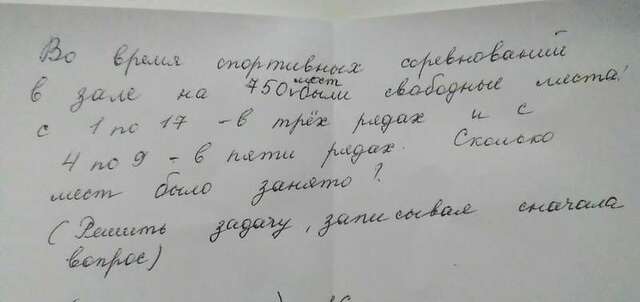 Во время спортивных соревнований
в зале на 750 мест были свободные места:
с 1 по 17 - в трёх рядах и с
4 по 9 - в пяти рядах. Сколько
мест было занято?
(Решить задачу, записывая сначала
вопрос)